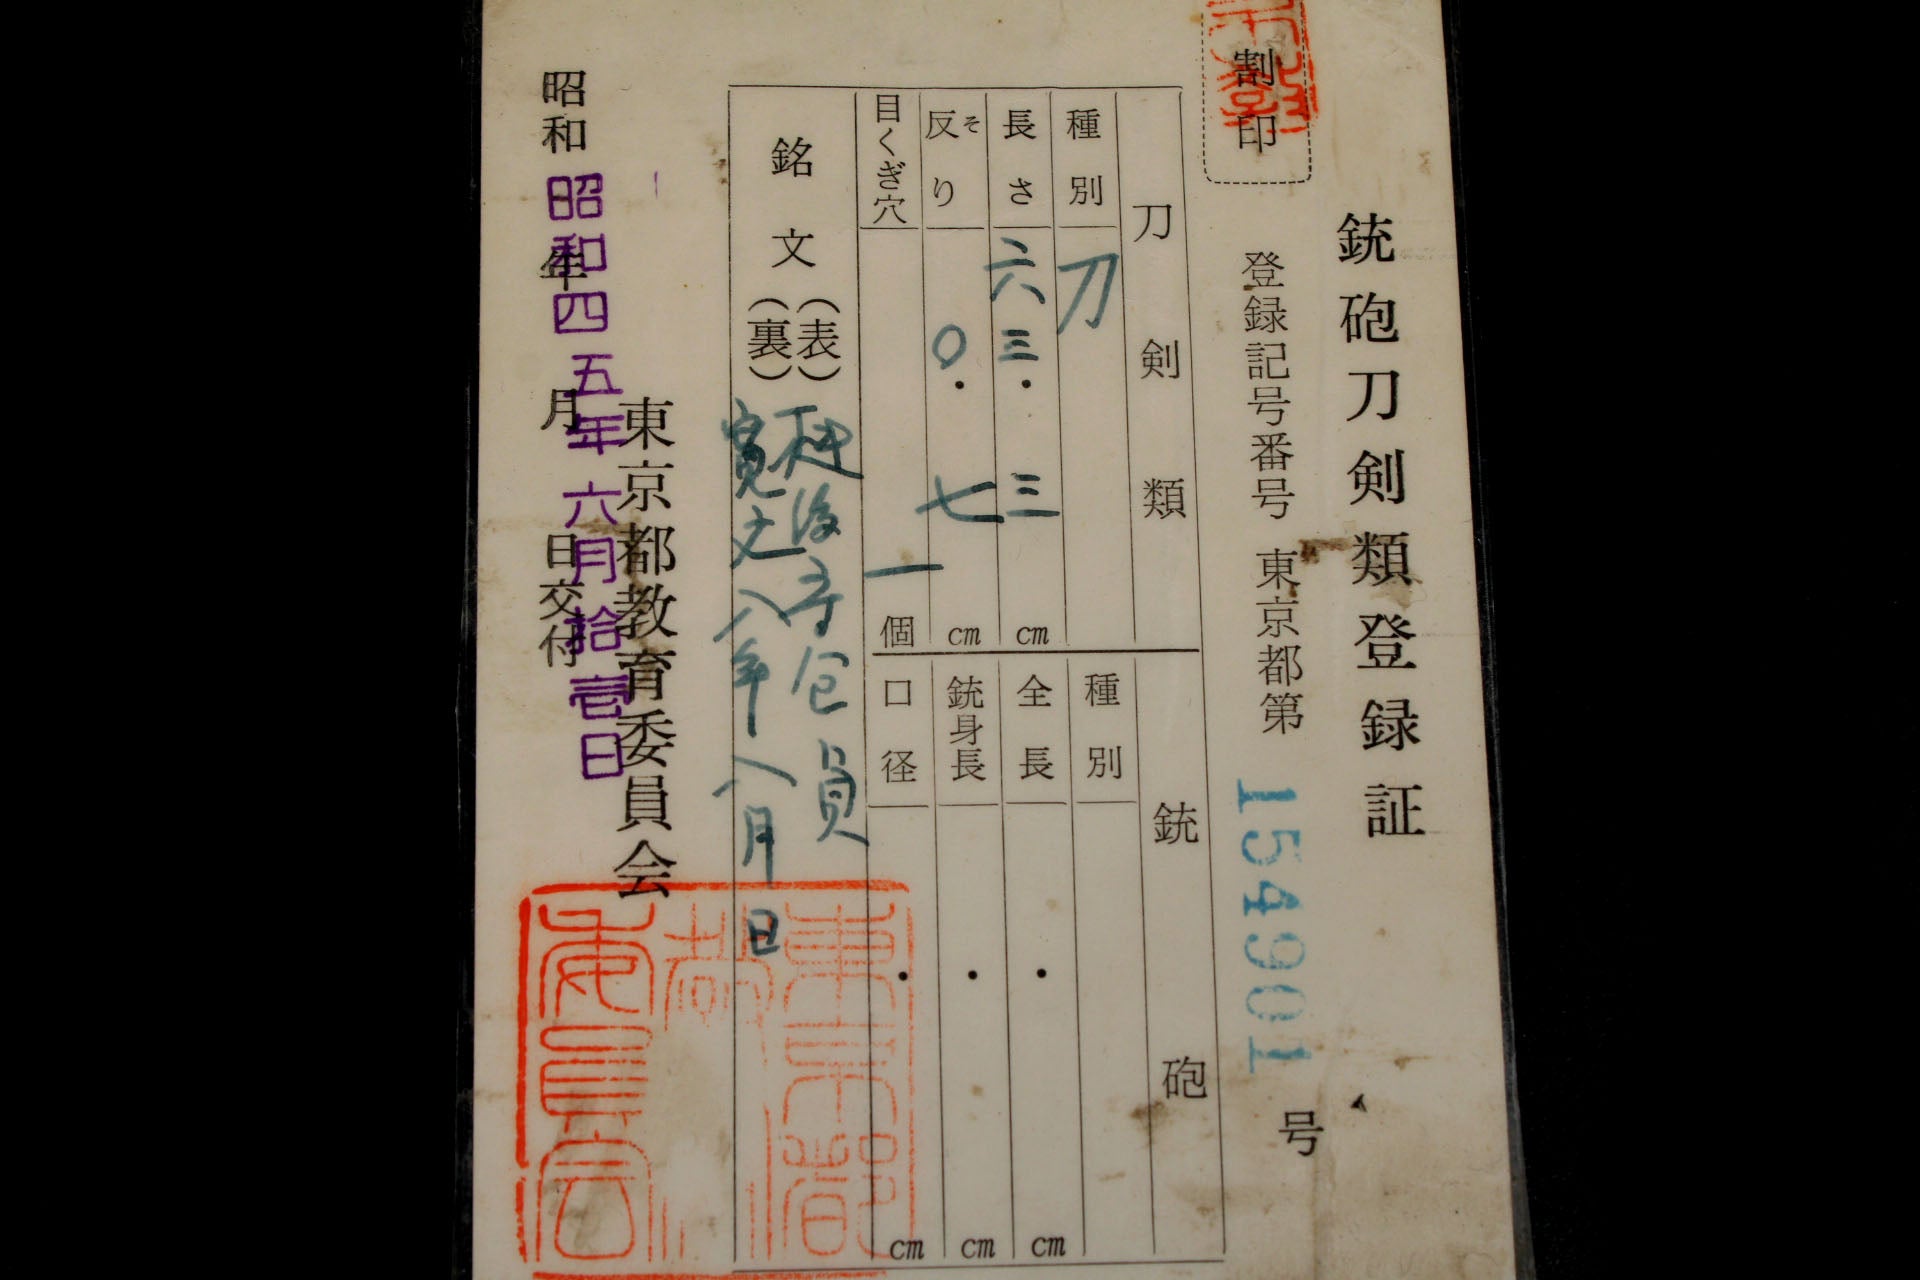 割印
銃砲刀剣類登録証
登録記号番号 東京都第 154901 号
刀剣類
種別 刀
長さ 六三.三 cm
反り そ 〇.七 cm
目くぎ穴 一 個
銘文
(表) 守 員
(裏) 寛文八年八月日
銃砲
種別
全長 . cm
銃身長 . cm
口径 . cm
東京都教育委員会
昭和 年 月 日交付
昭和四五年六月拾壱日